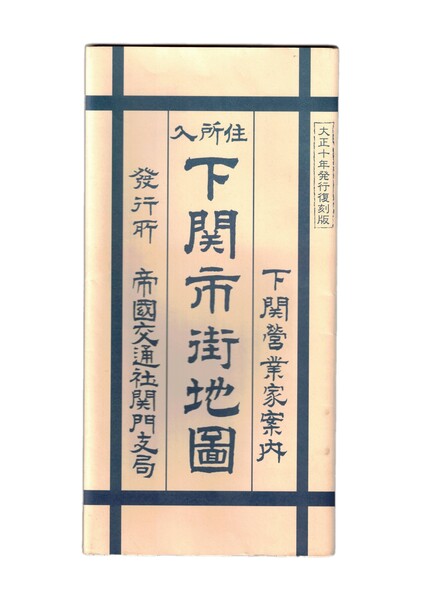 大正十年発行復刻版
下関營業家案内
住所入
下関市街地圖
發行所　帝國交通社関門支局